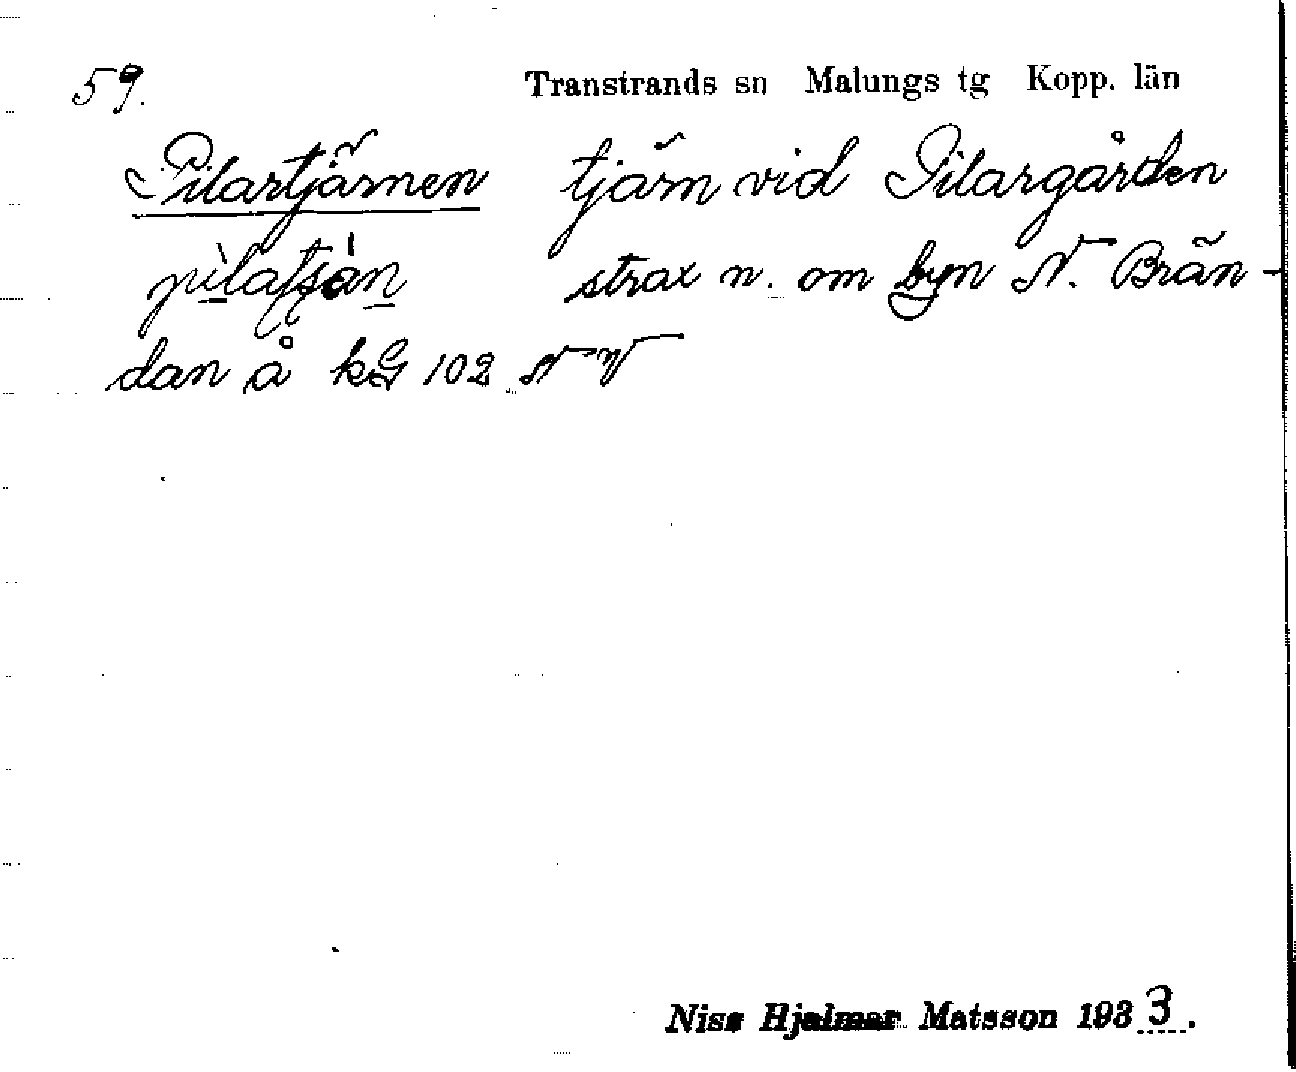 59.
Transtrands sn Malungs tg Kopp. län
Pilartjärnen tjärn vid Pilargården
strax n. om byn N. Brän-
dan å kG 102 NV
Niss Hjalmar Matsson 1933.